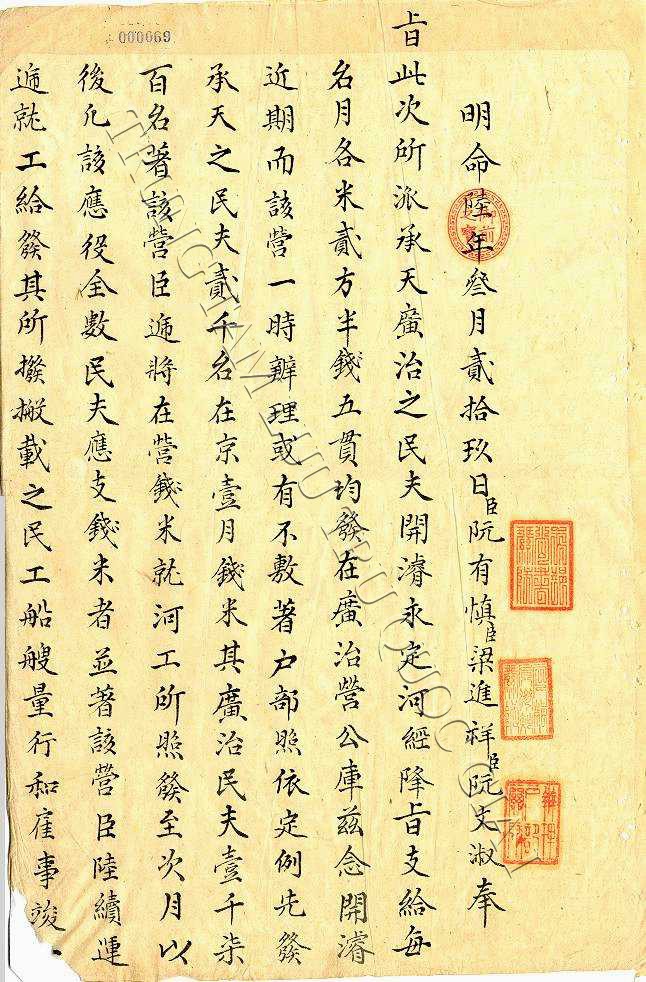 000069
明命陸年叁月貳拾玖日臣阮有慎臣梁進祥臣阮文淑奉
旨此次所派承天廣治之民夫開濬永定河經降旨支給每
名月各米貳方半錢五貫均發在廣治營公庫茲念開濬
近期而該營一時辦理或有不敷著户部照依定例先發
承天之民夫貳千名在京壹月錢米其廣治民夫壹千柒
百名著該營臣遞將在營錢米就河工所照發至次月以
後凡該應役全數民夫應支錢米者並著該營臣陸續運
遞就工給發其所撥搬載之民工船艘量行和雇事竣
TRUNG TAM LUU TRU QUOC GIA I